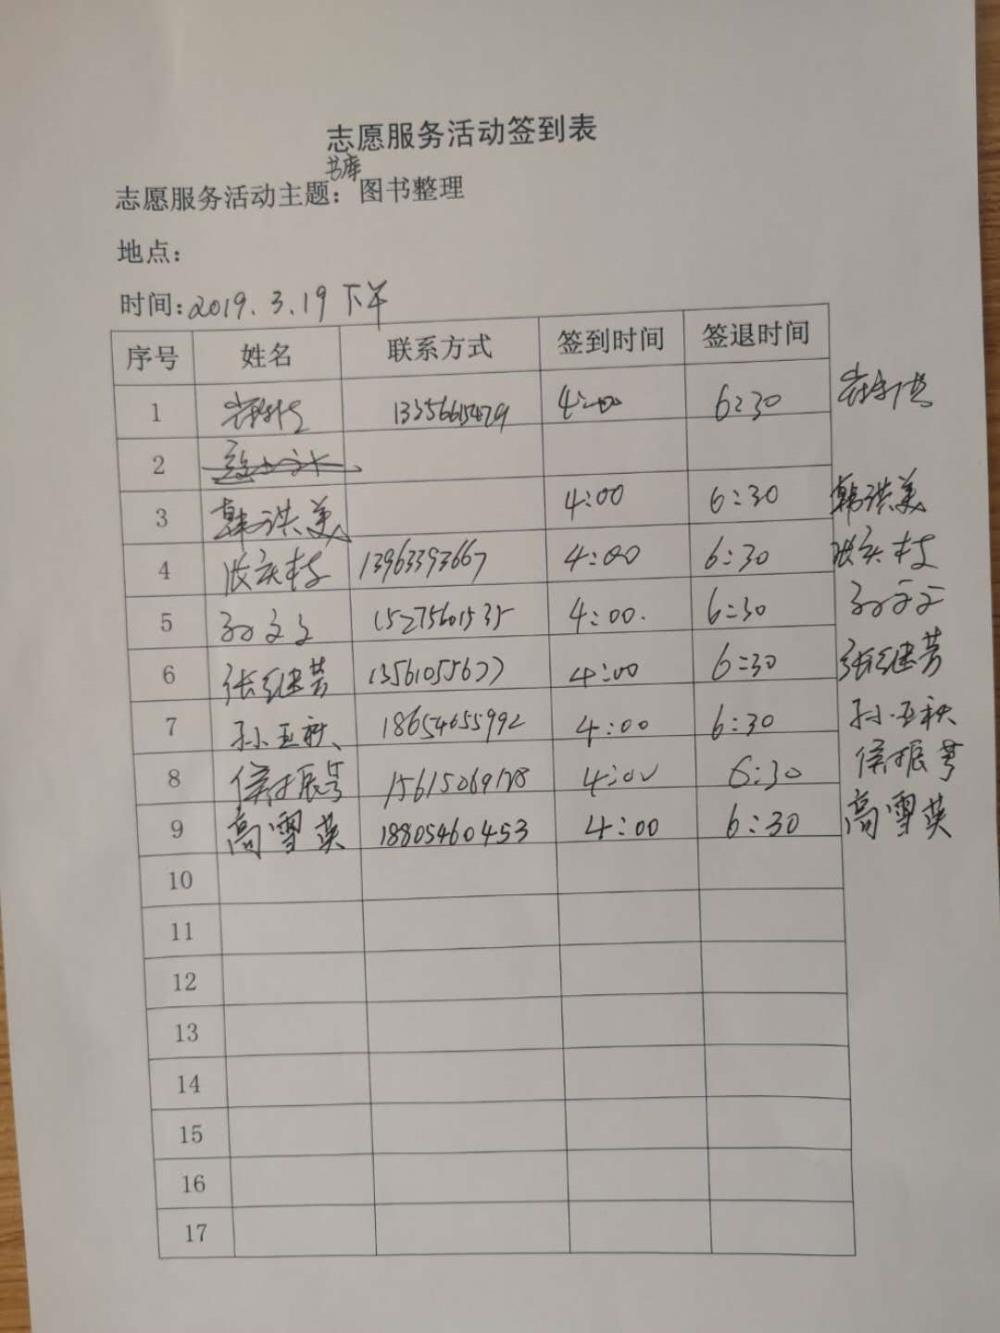 志愿服务活动签到表
书库
志愿服务活动主题：图书整理
地点：
时间:2019.3.19 下午
序号 姓名 联系方式 签到时间 签退时间
1 4:00 6:30
2
3 韩洪美 4:00 6:30 韩洪美
4 13963393667 4:00 6:30
5 孙文文 15275601535 4:00. 6:30 孙文文
6 张继芳 4:00 6:30 张继芳
7 孙亚秋、 18654655992 4:00 6:30 孙亚秋
8 4:00 6:30
9 高雪英 18805460453 4:00 6:30 高雪英
10
11
12
13
14
15
16
17